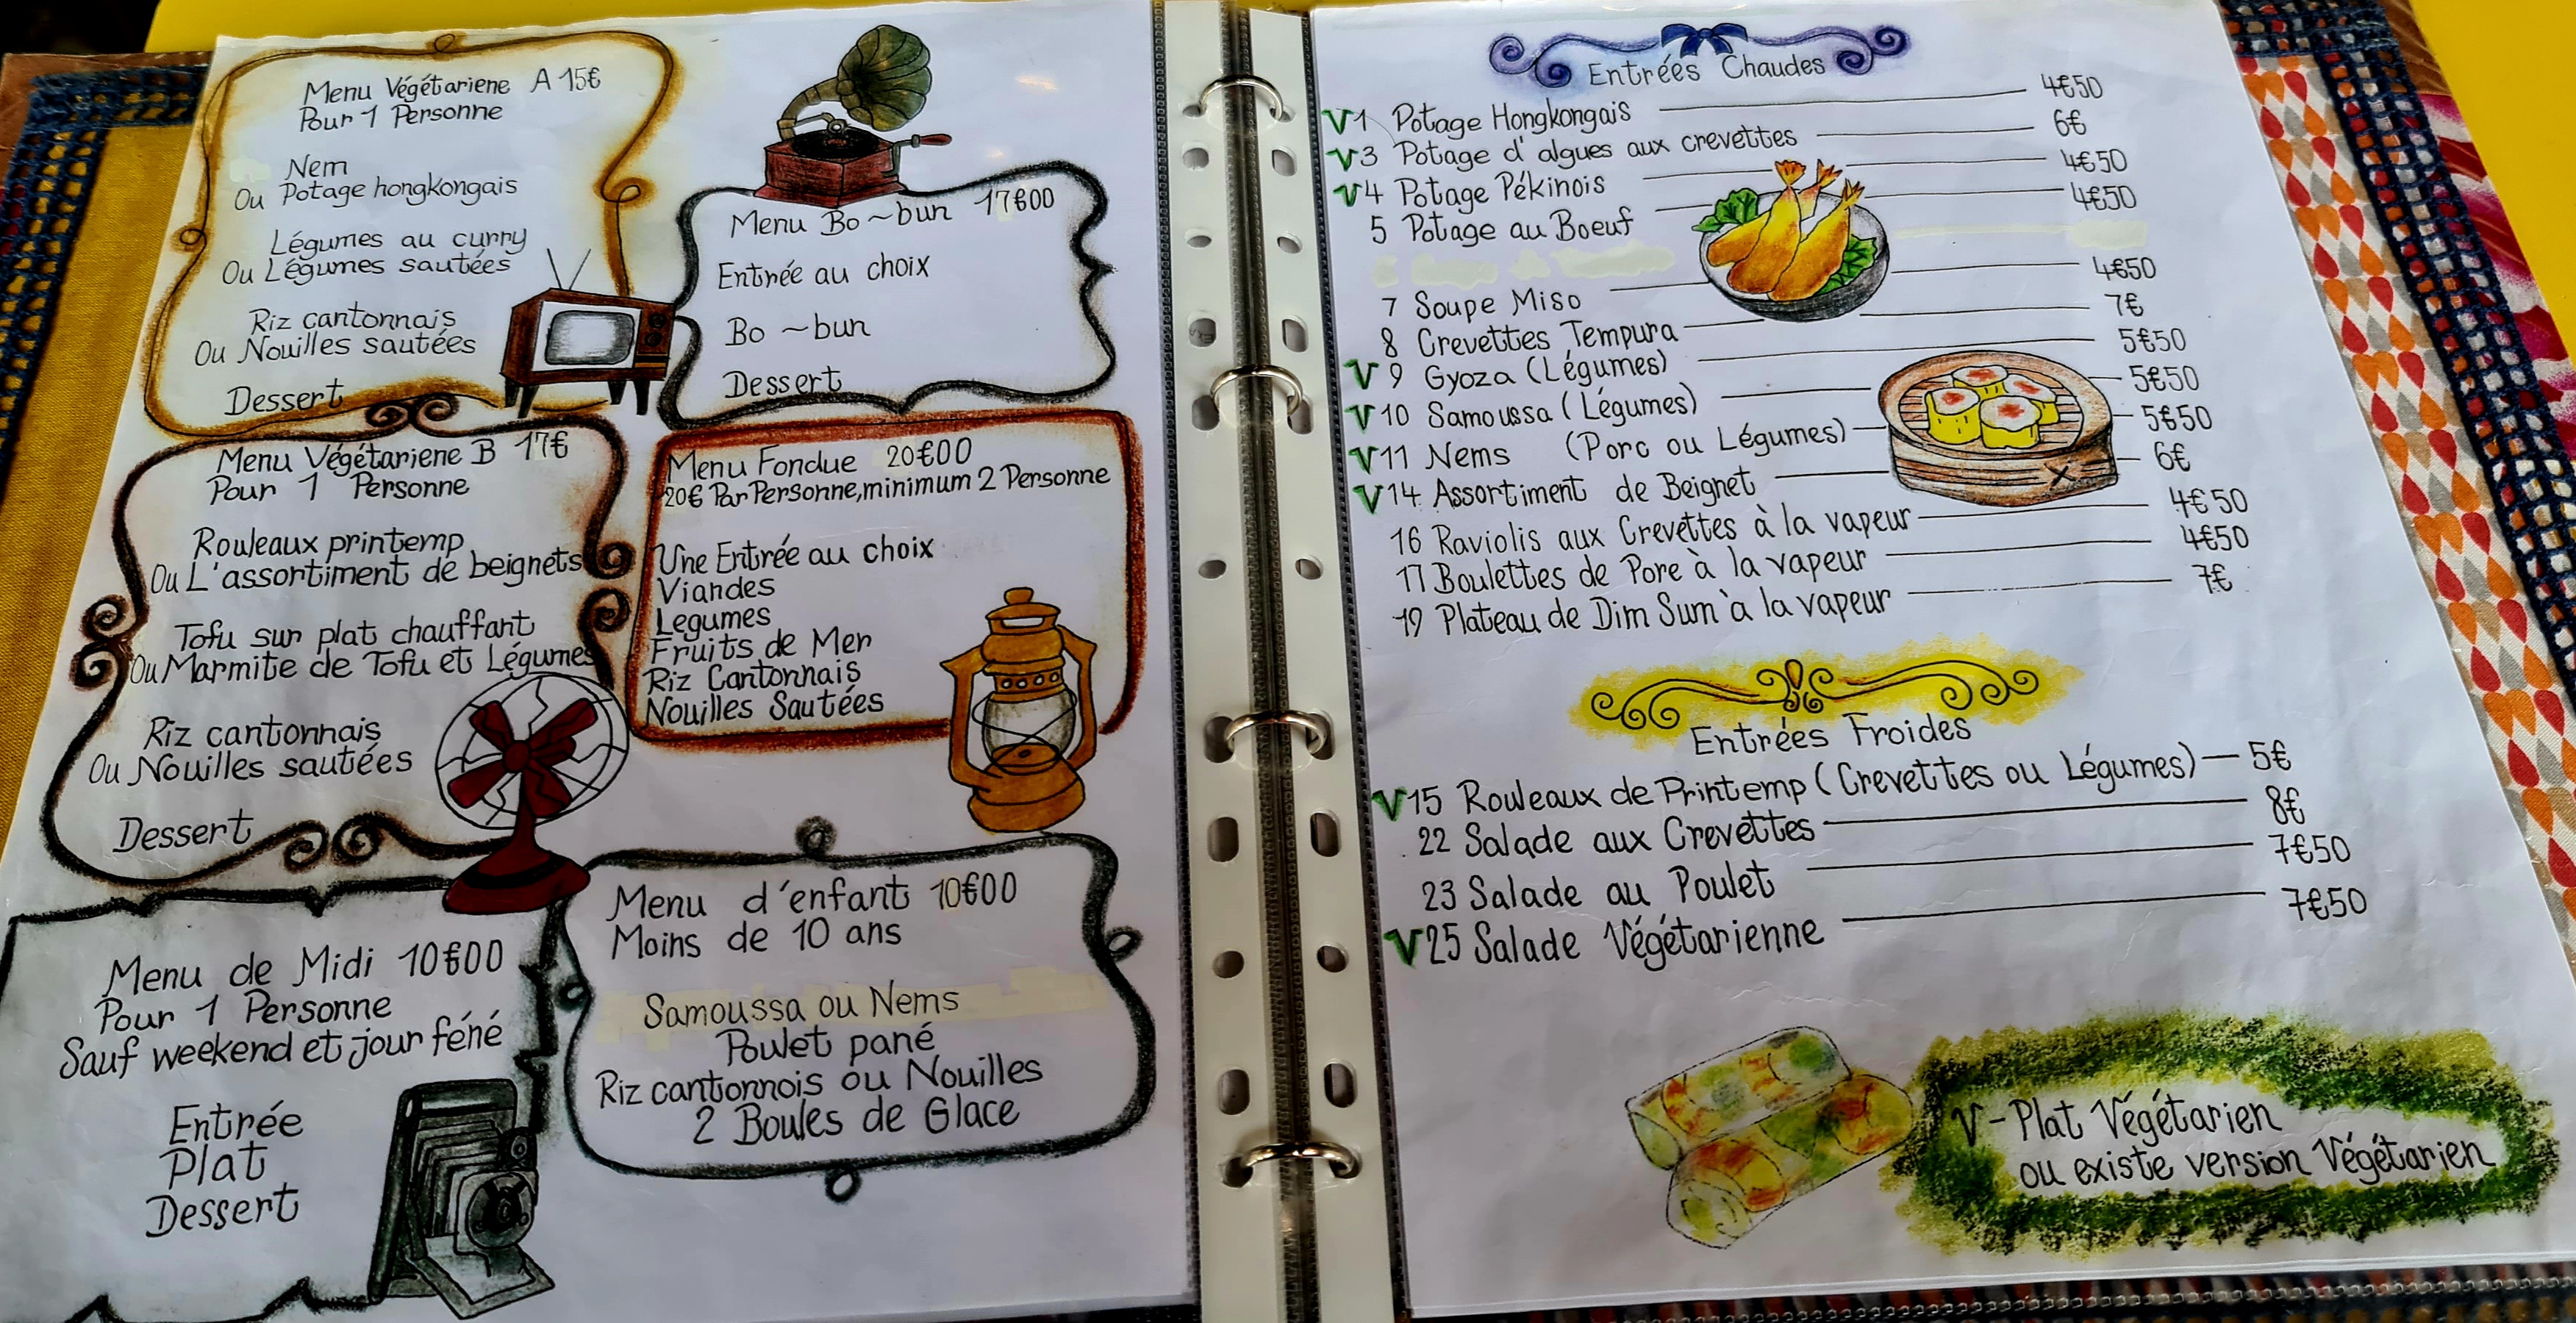 Menu Végétariene A 15€
Pour 1 Personne
Nem
Ou Potage hongkongais
Légumes au curry
Ou Légumes sautées
Riz cantonnais
Ou Nouilles sautées
Dessert
Menu Bo~bun 17€00
Entrée au choix
Bo~bun
Dessert
Menu Végétariene B 17€
Pour 1 Personne
Rouleaux printemp
Ou L'assortiment de beignets
Tofu sur plat chauffant
Ou Marmite de Tofu et Légumes
Riz cantonnais
Ou Nouilles sautées
Dessert
Menu Fondue 20€00
20€ Par Personne, minimum 2 Personne
Une Entrée au choix
Viandes
Legumes
Fruits de Mer
Riz Cantonnais
Nouilles Sautées
Menu de Midi 10€00
Pour 1 Personne
Sauf weekend et jour féné
Entrée
Plat
Dessert
Menu d'enfant 10€00
Moins de 10 ans
Samoussa ou Nems
Poulet pané
Riz cantonnois ou Nouilles
2 Boules de Glace
Entrées Chaudes
V1 Potage Hongkongais 4€50
V3 Potage d'algues aux crevettes 6€
V4 Potage Pékinois 4€50
5 Potage au Boeuf 4€50
7 Soupe Miso 4€50
8 Crevettes Tempura 7€
V9 Gyoza (Légumes) 5€50
V10 Samoussa (Légumes) 5€50
V11 Nems (Porc ou Légumes) 5€50
V14 Assortiment de Beignet 6€
16 Raviolis aux Crevettes à la vapeur 4€50
17 Boulettes de Porc à la vapeur 4€50
19 Plateau de Dim Sum à la vapeur 7€
Entrées Froides
V15 Rouleaux de Printemp (Crevettes ou Légumes) 5€
22 Salade aux Crevettes 8€
23 Salade au Poulet 7€50
V25 Salade Végétarienne 7€50
V-Plat Végétarien
ou existe version Végétarien